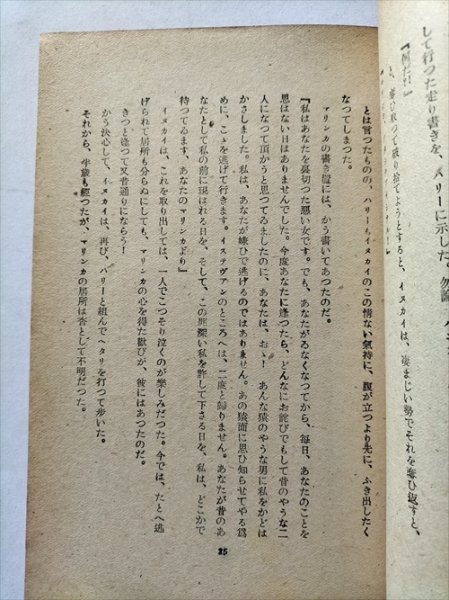 して行つた走り書きを、メリーに示した。勿論、ハ
『何だ!』
と、奪ひ取つて破り捨てようとすると、イヌカイは、凄まじい勢でそれを奪ひ返すと、
とは言つたものの、ハリーもイヌカイのこの情ない氣持に、腹が立つより先に、ふき出したく
なつてしまつた。
マリンカの書き置には、かう書いてあつたのだ。
『私はあなたを裏切つた惡い女です。でも、あなたがゐなくなつてから、毎日、あなたのことを
思はない日はありませんでした。今度あなたに逢つたら、どんなにお詫びでもして昔のやうな二
人になつて頂かうと思つてゐましたのに、あなたは、おゝ! あんな猿のやうな男に私をかどは
かさしました。私は、あなたが嫌ひで逃げるのではありません。あの猿面に思ひ知らせてやる爲
めに、こゝを逃げて行きます。イステヴアンのところへは、二度と歸りません。あなたが昔のあ
なたとして私の前に現はれる日を、そして、この罪深い私を許して下さる日を、私は、どこかで
待つてゐます、あなたのマリンカより』
イヌカイは、これを取り出しては、一人でこつそり泣くのが樂しみだつた。今では、たとへ逃
げられて居所も分らぬにしても、マリンカの心を得た歡びが、彼にはあつたのだ。
きつと逢つて又昔通りにならう!
かう決心して、イヌカイは、再び、ハリーと組んでヘタリを打つて歩いた。
それから、半歳も經つたが、マリンカの居所は杳として不明だつた。
25